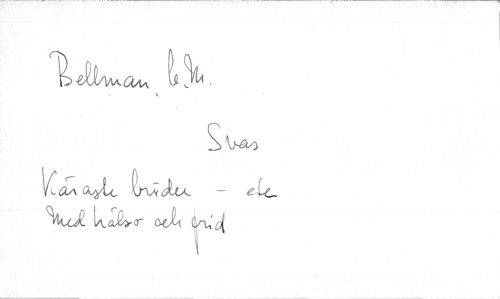 Bellman, C.M.
Svar
Käraste bröder – etc
Med hälso och frid